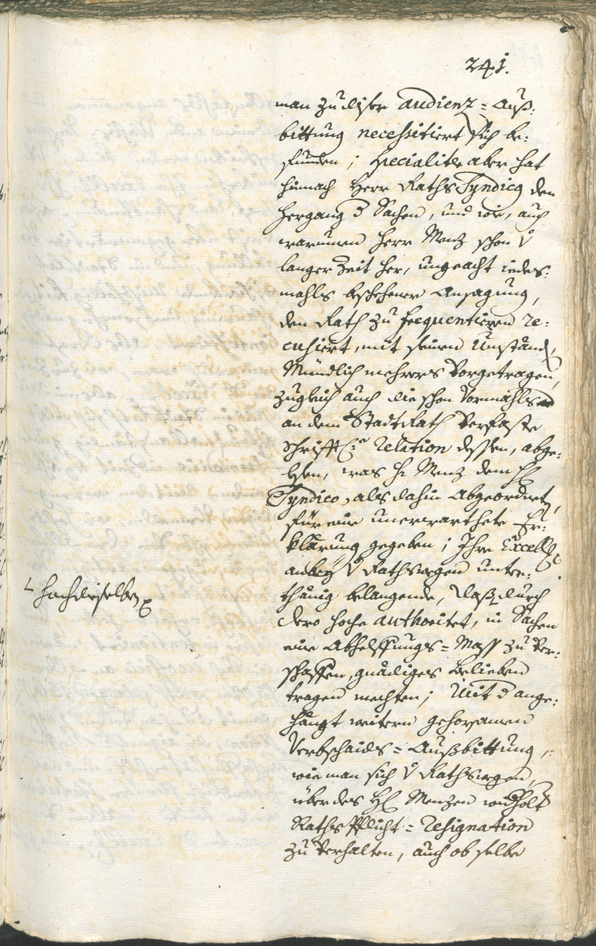 241.
man zu diser audienz= Auß-
bittung necessitiert sich be-
funden; specialiter aber hat
hirnach Herr Raths Syndicg den
hergang d Sachen, und wie, auch
warumen Herr Menz schon v
langer Zeit her, ungeacht iedes-
mahls beschehener Ansagung,
den Rath zu frequentieren re-
cusiert, mit seinen Umständ
Mündlich mehrers vorgetragen,
zugleich auch die schon vormahls
an dem StadtRath verfaste
schrifftl: relation dessen, abge-
lesen, was H: Menz dem H:
Syndico, als dahin Abgeordnet,
für eine unerwarthete Er-
klärung gegeben; Ihre Excell:
anbey v Rathswegen unter-
thänig belangende, daß durch
dero hoche authoritet, in Sachen
eine Abhelffungs= Mass zu ver-
schaffen, gnädiges belieben
tragen mechten; Mit d ange-
hängt weitern gehorsamen
Verbschaids= Außbittung,
wie man sich v Rathswegen,
über des H: Menzen
Raths Pflicht= resignation
zu verhalten, auch ob selbe
hochdieselben